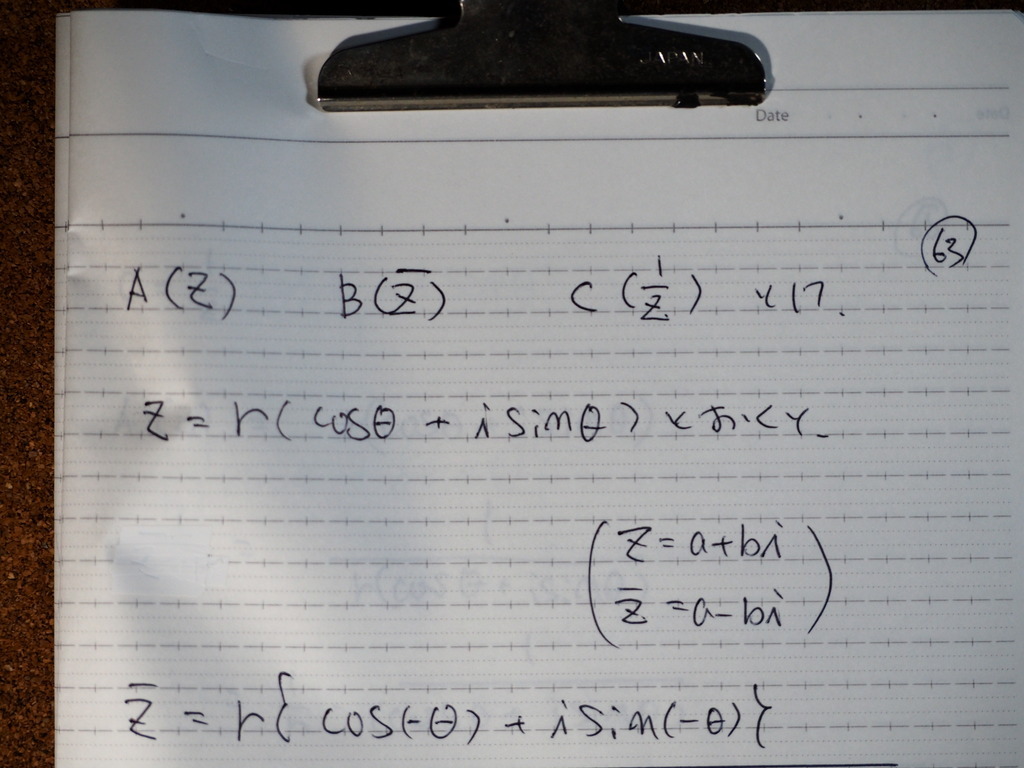 JAPAN
Date
63
A(z) B(z̄) C(1/z) とける.
z = r(cosθ + i sinθ) とおくと.
z = a+bi
z̄ = a-bi
z̄ = r{cos(-θ) + i sin(-θ)}